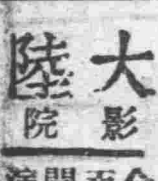 大陸
影院